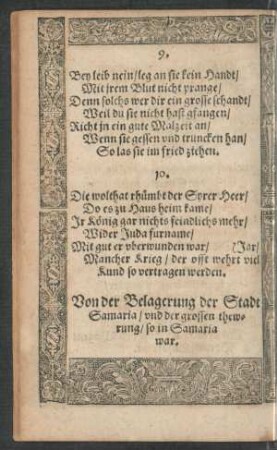 9.
Bey leib nein/leg an sie kein Handt/
Mit jrem Blut nicht prange/
Denn solchs wer dir ein grosse schandt/
Weil du sie nicht hast gfangen/
Richt jn ein gute Malzeit an/
Wenn sie gessen vnd truncken han/
So las sie im fried ziehen.
10.
Die wolthat rhümbt der Syrer Heer/
Do es zu Haus heim kame/
Jr König gar nichts feindlichs mehr/
Wider Juda furname/
Mit gut er vberwunden war/ [Jar/
Mancher Krieg/ der offt wehrt viel
Kund so vertragen werden.
Von der Belagerung der Stadt
Samaria/ vnd der grossen thew-
rung/ so in Samaria
war.